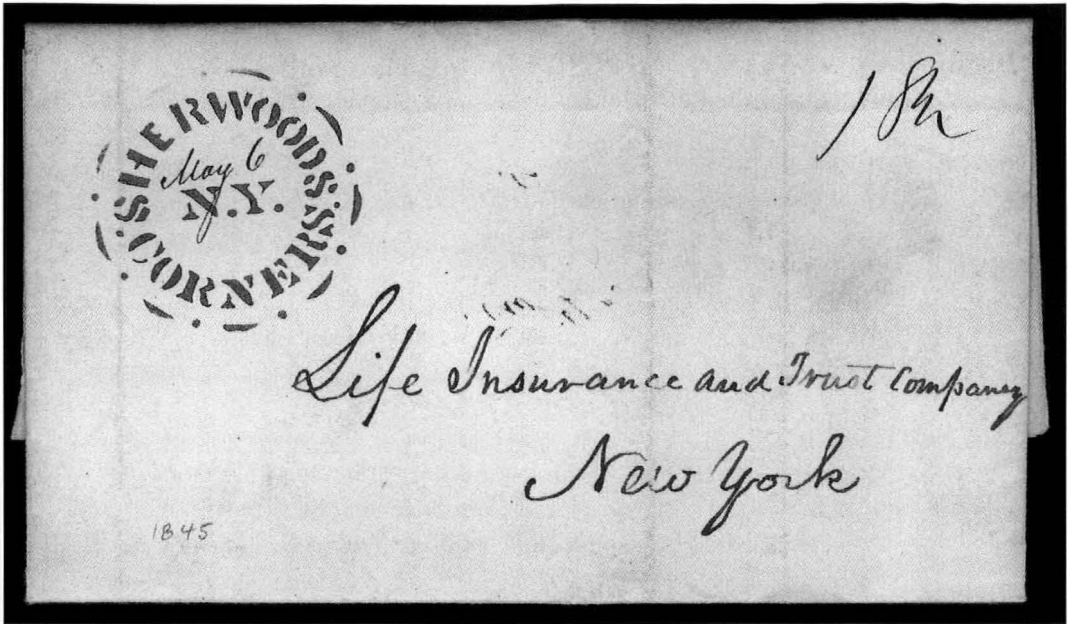 SHERWOODS
May 6
N.Y.
CORNERS
18¾
Life Insurance and Trust Company
New York
1845